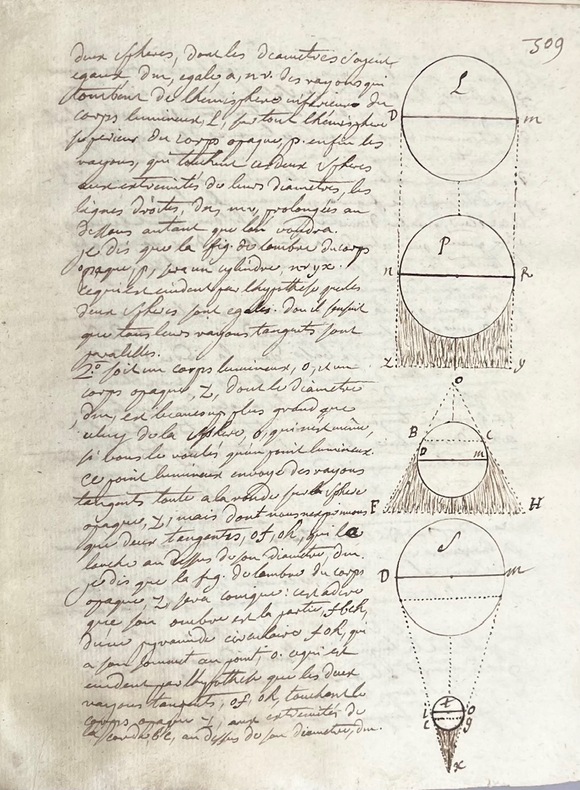 309
deux spheres, dont les diametres soyent
egaux dm, egale a, nr. des rayons qui
tombent de l'hemisphere inferieure du
corps lumineux, L, sur tout l'hémisphere
superieur du corps opaque, p. enfin les
rayons, qui touchent ces deux spheres
aux extremités de leurs diametres, les
lignes droites, dn, mr, prolongées au
dessous autant que l'on voudra.
je dis que la fig. de l'ombre du corps
opaque, p, sera un cylindre, nryx.
ce qui est evident par l'hypothese que les
deux spheres sont egales. d'ou il s'ensuit
que tous leurs rayons tangents sont
paralleles.
2.o soit un corps lumineux, o, et un
corps opaque, Z, dont le diametre
, dm, est beaucoup plus grand que
celuy de la sphere, o, qui n'est même,
si vous le voulés qu'un point lumineux.
Ce point lumineux envoye des rayons
tangents toute a la ronde sur la sphere
opaque, Z, mais dont nous n'exprimons
que deux tangentes, of, oh, qui la
touche au dessus de son diametre, dm.
je dis que la fig. de l'ombre du corps
opaque, Z sera conique: c'est a dire
que son ombre est la partie, fbch,
d'une pyramide circulaire foh, qui
a son sommet au point, o. ce qui est
evident par l'hypothese que les deux
rayons tangents, of, oh, touchant le
corps opaque Z, aux extremités de
la corde, bc, au dessus de son diametre, dm.
L
D m
P
n R
y
o
B C
D m
F H
S
D m
t
L o
C g
x